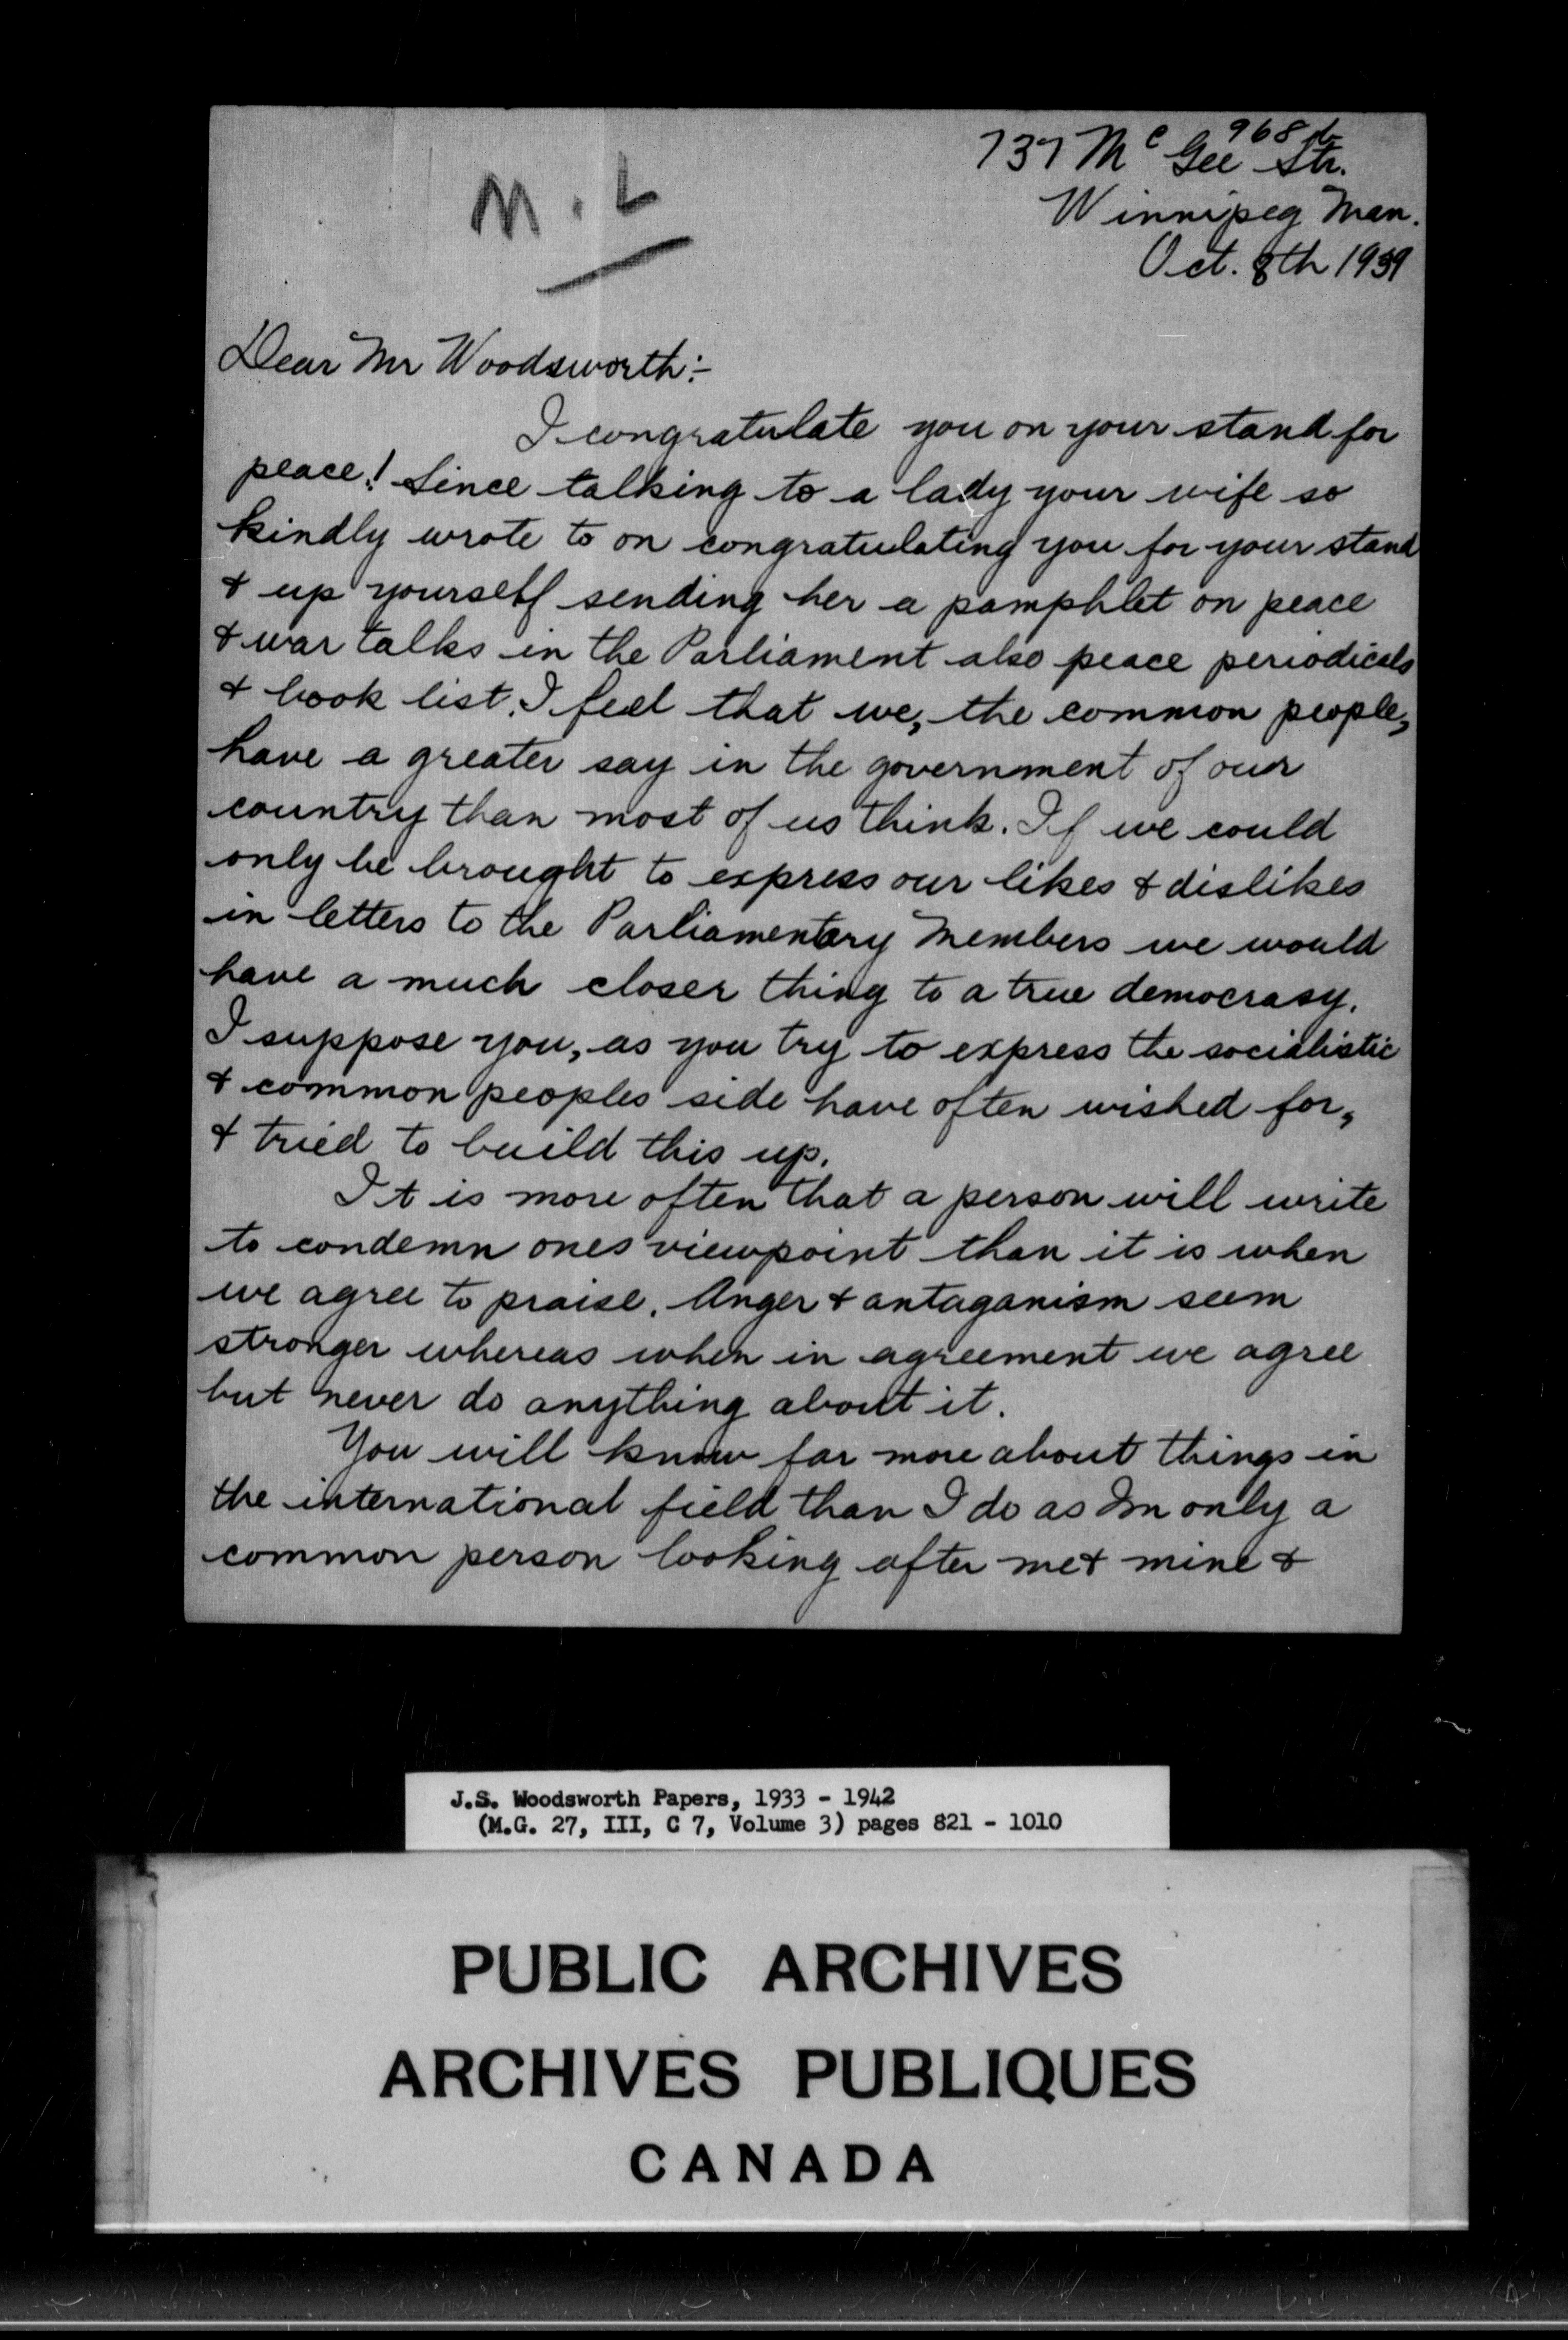 968
737 Mc Gee Str.
Winnipeg Man.
Oct. 8th 1939
M. L
Dear Mr Woodsworth:-
I congratulate you on your stand for
peace! Since talking to a lady your wife so
kindly wrote to on congratulating you for your stand
& up yourself sending her a pamphlet on peace
& war talks in the Parliament also peace periodicals
& book list. I feel that we, the common people,
have a greater say in the government of our
country than most of us think. If we could
only be brought to express our likes & dislikes
in letters to the Parliamentary Members we would
have a much closer thing to a true democrasy.
I suppose you, as you try to express the socialistic
& common peoples side have often wished for,
& tried to build this up.
It is more often that a person will write
to condemn ones viewpoint than it is when
we agree to praise. Anger & antaganism seem
stronger whereas when in agreement we agree
but never do anything about it.
You will know far more about things in
the international field than I do as Im only a
common person looking after me & mine &
J.S. Woodsworth Papers, 1933 - 1942
(M.G. 27, III, C 7, Volume 3) pages 821 - 1010
PUBLIC ARCHIVES
ARCHIVES PUBLIQUES
CANADA